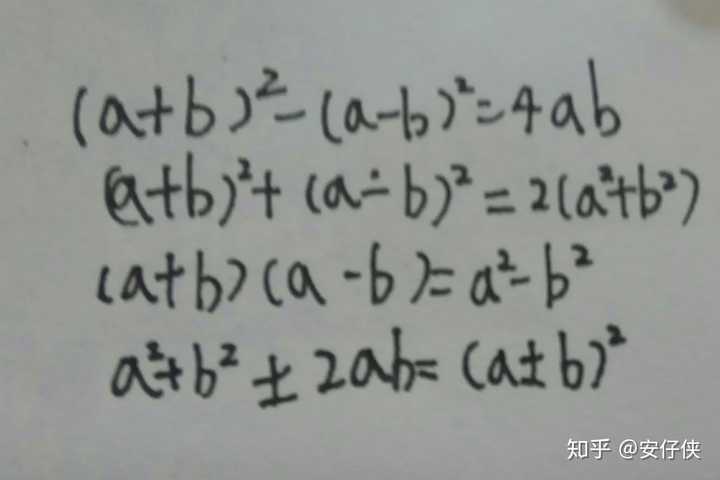 (a+b)²-(a-b)²=4ab
(a+b)²+(a-b)²=2(a²+b²)
(a+b)(a-b)=a²-b²
a²+b²±2ab=(a±b)²
知乎 @安仔侠